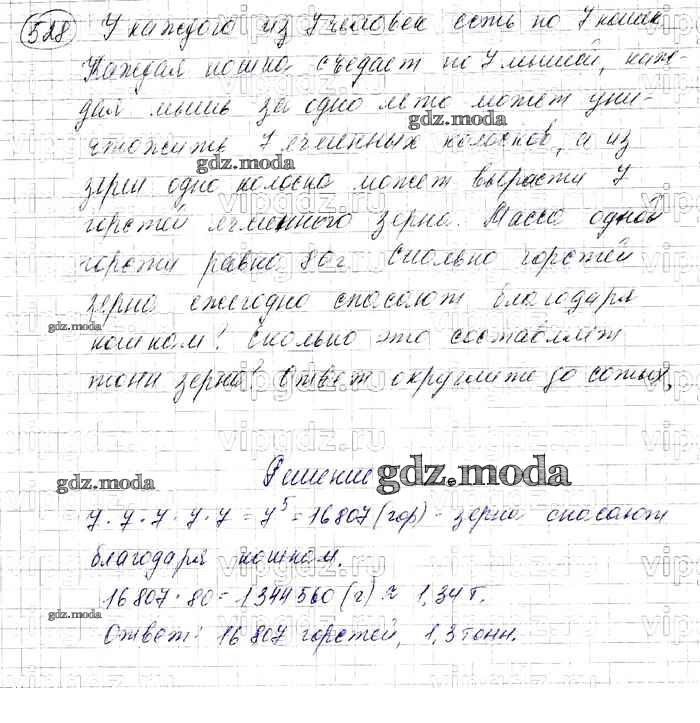 528 У каждого из 7 человек есть по 7 кошек.
Каждая кошка съедает по 7 мышей, каж-
дая мышь за одно лето может уни-
чтожить 7 ячменных колосков, а из
зерен одно колоска может вырасти 7
горстей ячменного зерна. Масса одной
горсти равна 80г. Сколько горстей
зерна ежегодно спасают благодаря
кошкам? Сколько это составляет
тонн зерна? Ответ округлите до сотых.
Решение
7·7·7·7·7=7⁵=16807(гор) - зерна спасают
благодаря кошкам.
16807·80=1344560(г)≈1,34т.
Ответ: 16807 горстей, 1,3тонн.
gdz.moda
gdz.moda
gdz.moda
gdz.moda
gdz.moda
gdz.moda
vipgdz.ru